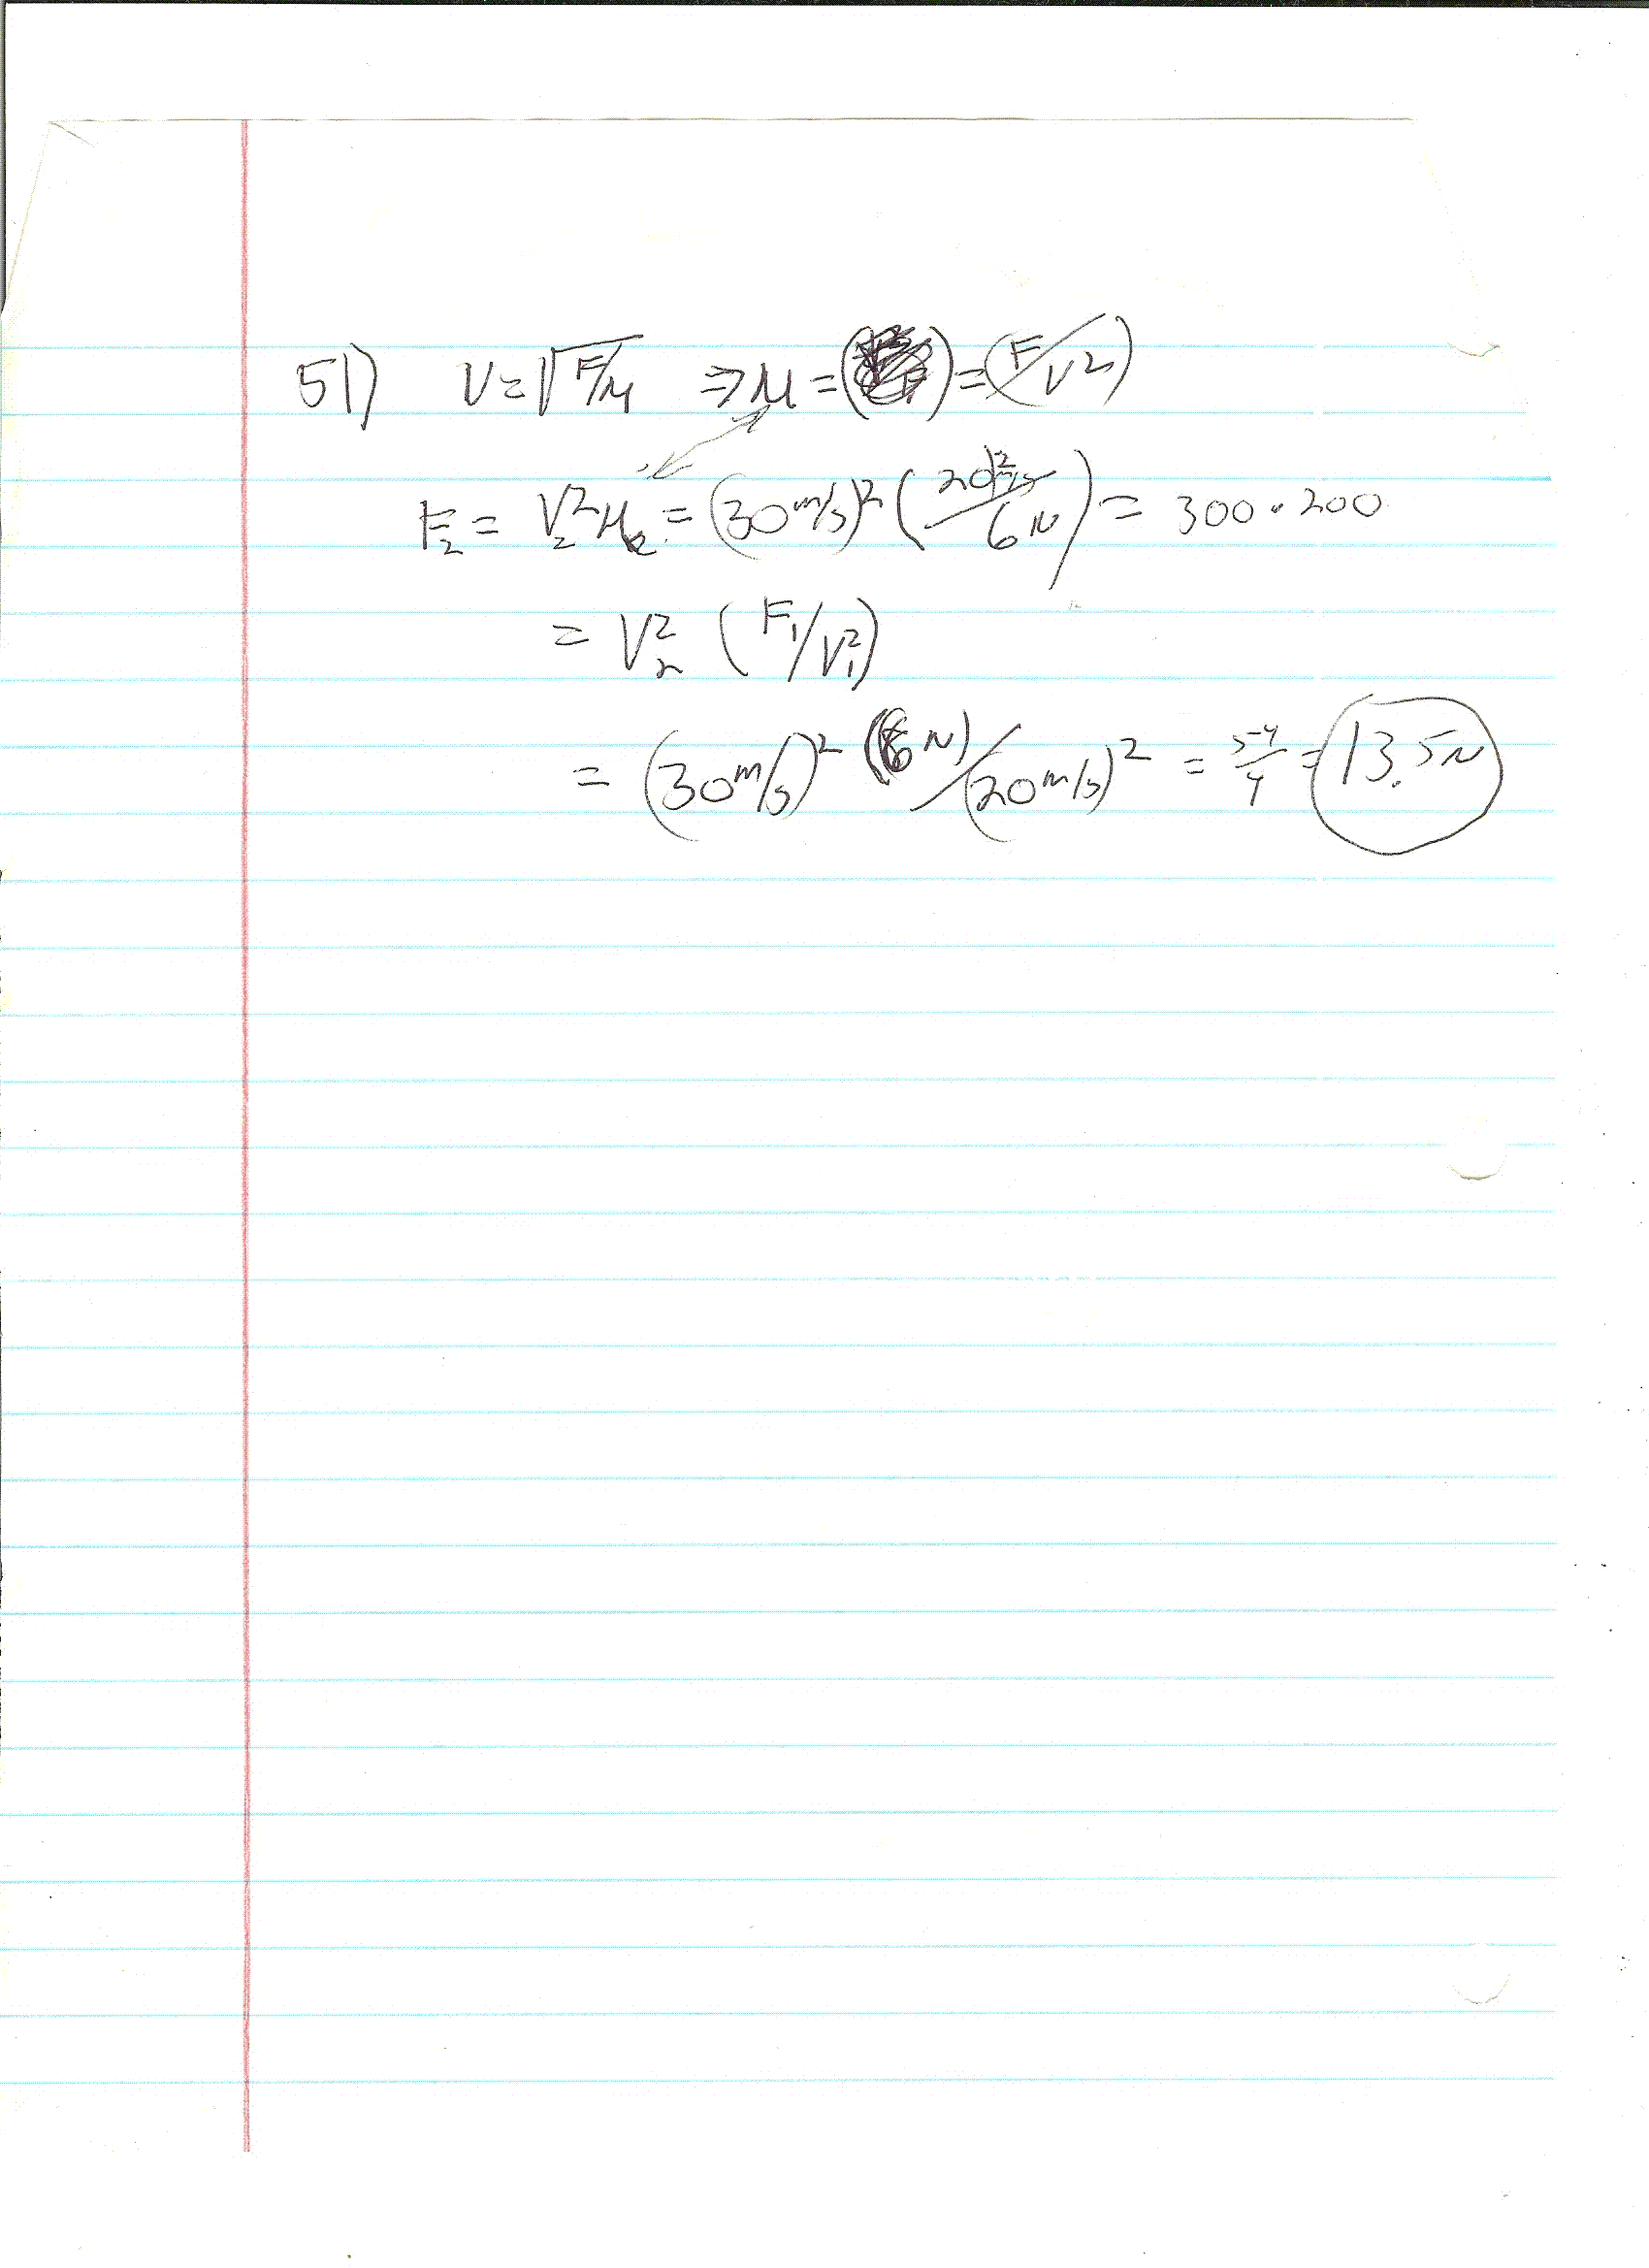 51) V = √F/μ ⇒ μ = ( ) = (F/V²)
F₂ = V₂²μ = (30 m/s)² (20 m/s/6N) = 300 · 200
= V₂² (F₁/V₁²)
= (30 m/s)² (6N)/(20 m/s)² = 54/4 = 13.5N